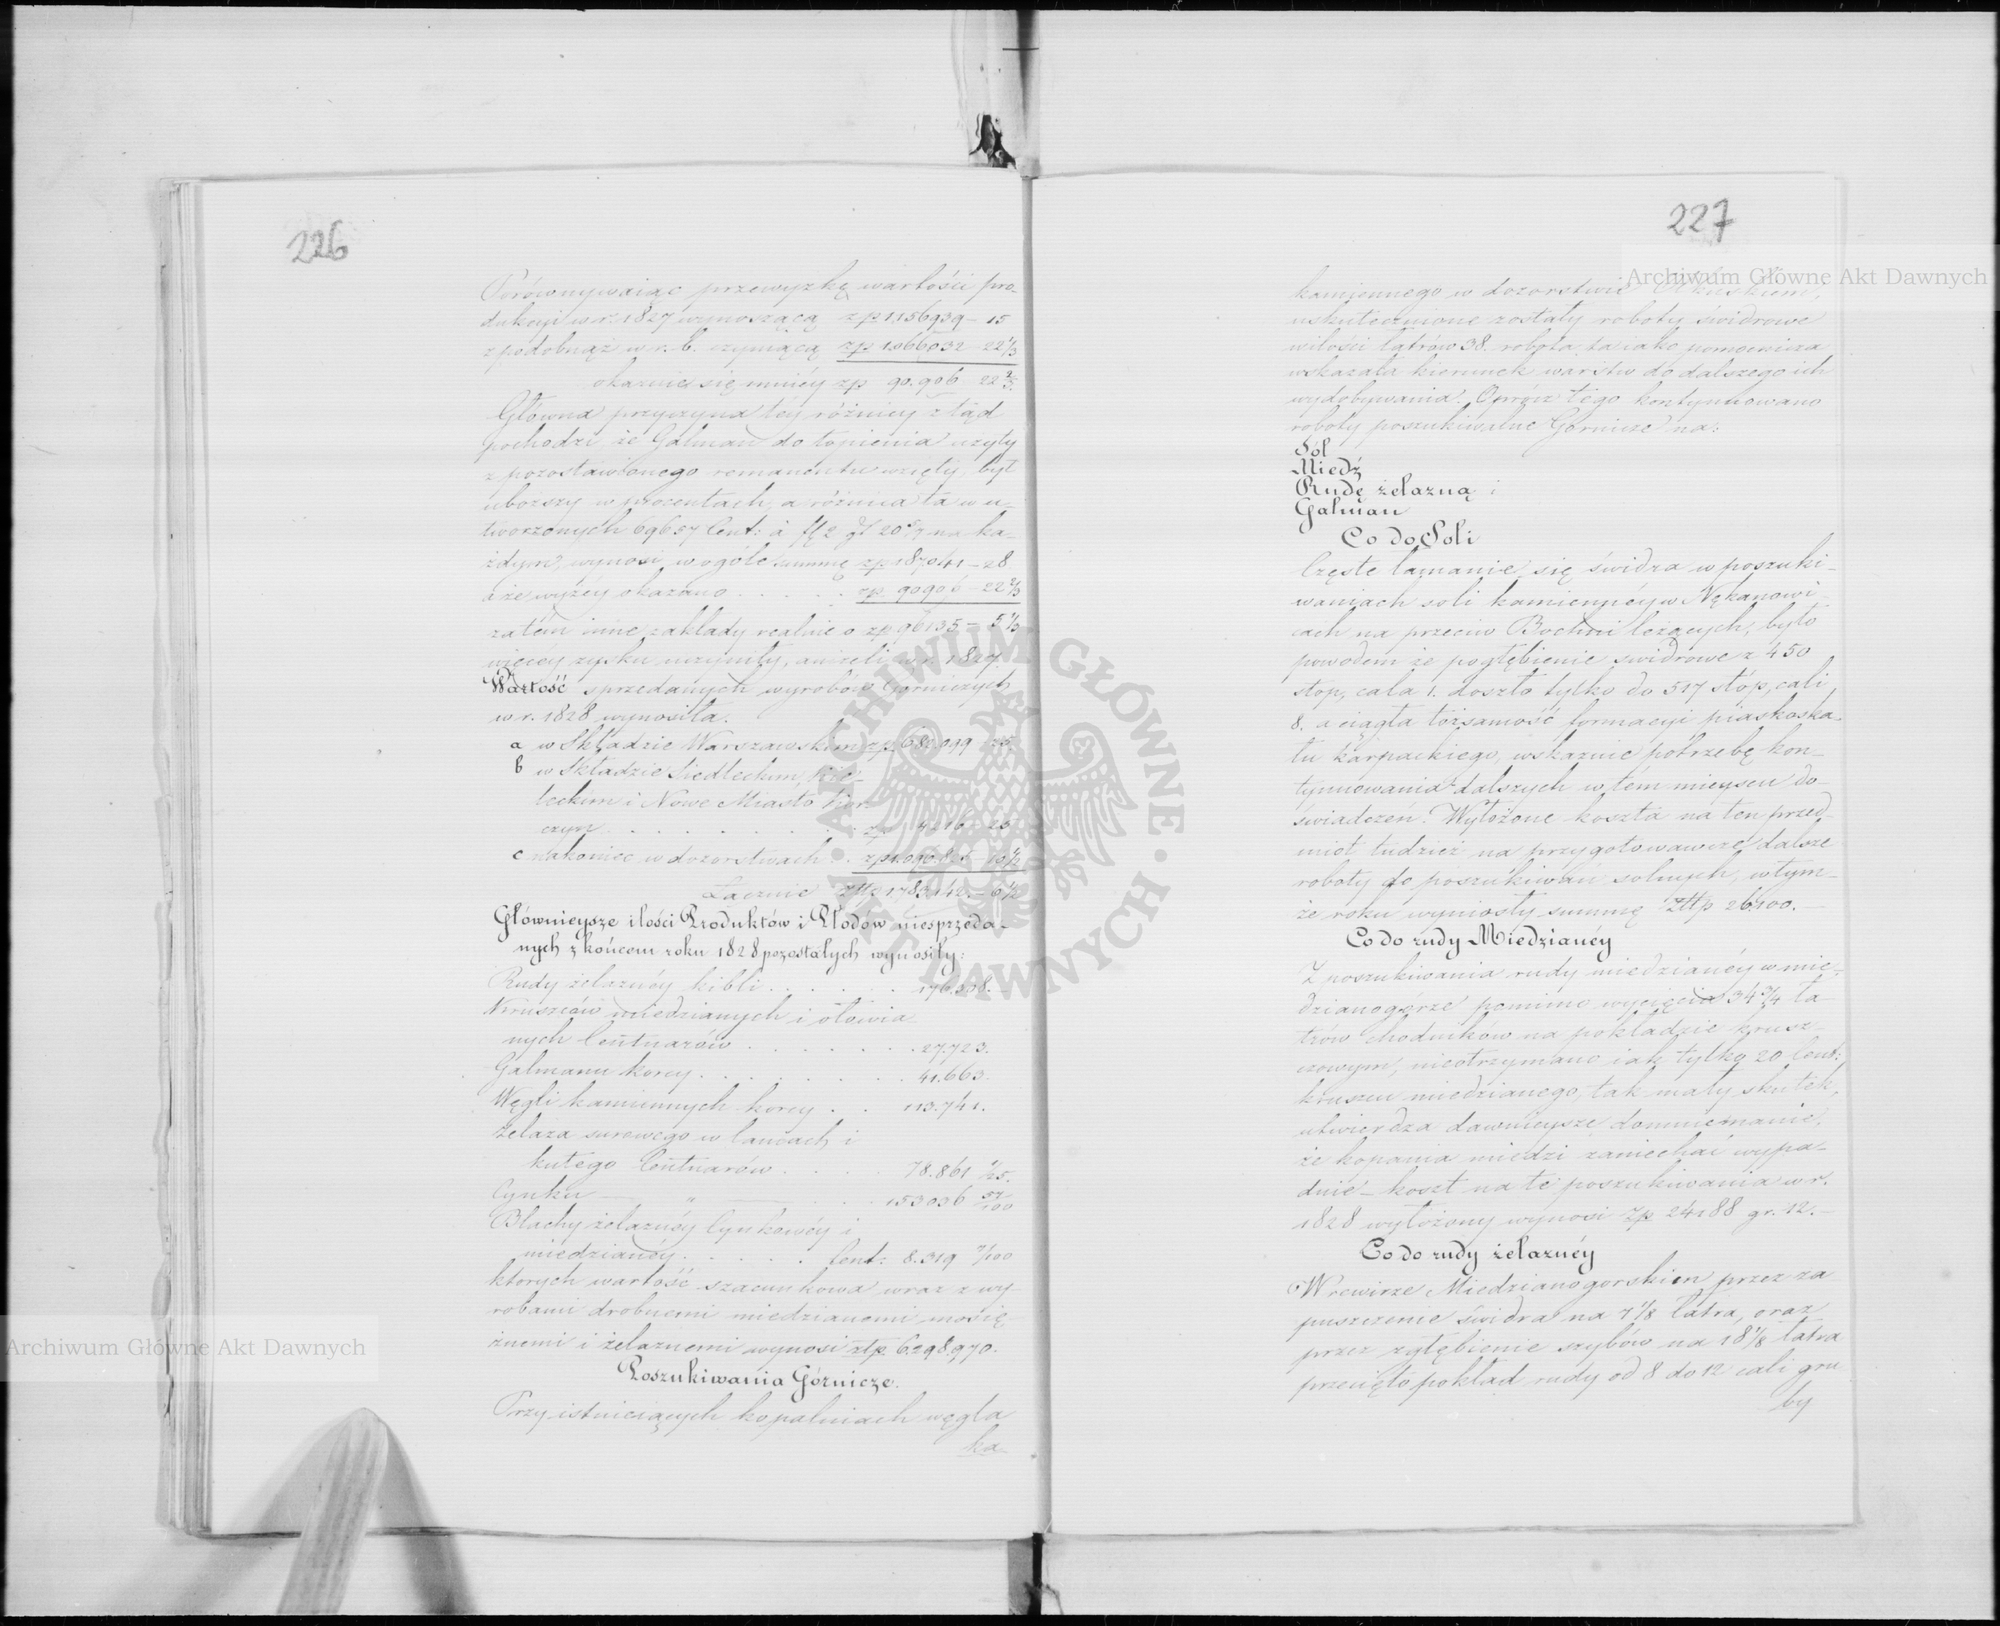 226
Porównywaiąc przewyzkę wartości pro-
dukcyi w r. 1827 wynoszącą zp 1,156939 – 15
z podobnąż w r. b. czyniącą zp 1,066032 – 22 1/3
okazuie się mniéy zp 90.906 22 2/3.
Główna przyczyna téy różnicy ztąd
pochodzi, że Galman do topienia użyty
z pozostawionego remanentu wzięty, był
uboższy w procentach, a różnica ta w u-
tworzonych 69657 Cent: à
na ka-
żdym, wynosi w ogóle summę zp 187041 – 28
a że wyżéy okazano . . . . . zp. 90906 – 22 2/3
zatém inne zakłady realnie o zp. 96135 – 5 1/3
więcéy zysku uczyniły, aniżeli w r. 1827.
Wartość sprzedanych wyrobów Górniczych
w r. 1828 wynosiła.
a w Składzie Warszawskim zp
b w Składzie Siedleckim,
leckim i Nowe Miasto Kor-
czyn . . . . . . . . . zp 4216 – 25
c nakoniec w dozorstwach . . zp 1.096.825 10 1/2
Łącznie Złtp 1783142. – 6 1/2
Główniejsze ilości Produktów i Płodów niesprzeda-
nych z końcem roku 1828 pozostałych wynosiły:
Rudy żelaznéy kibli . . . . . . 176.308. –
Kruszców miedzianych i ołowia
nych Centnarów . . . . . . . 27.723.
Galmanu korcy . . . . . . . . 41.663.
Węgli kamiennych korcy . . 113.741.
Żelaza surowego w lancach i
kutego Centnarów . . . . 78.861 1/25.
Cynku — „ — . . 153036 57/100
Blachy żelaznéy Cynkowéy i
miedzianéy . . . . . Cent: 8.319 7/100
których wartość szacunkowa wraz z wy-
robami drobnemi miedzianemi mosię
żnemi i żelaznemi wynosi złtp. 6.298,970.
Poszukiwania Górnicze.
Przy istnieiących kopalniach węgla
ka
227
kamiennego w dozorstwie Olkuskiem,
uskutecznione zostały roboty świdrowe
w ilości łatrów 38. robota ta iako pomocnicza
wskazała kierunek warstw do dalszego ich
wydobywania. Oprócz tego kontynuowano
roboty poszukiwalne Górnicze na:
Sól
Miedź
Rudę żelazną i
Galman
Co do Soli
Częste łamanie się świdra w poszuki-
waniach soli kamiennéy w Nękanowi-
cach na przeciw Bochni leżących, było
powodem że pogłębienie świdrowe z 450
stop, cala 1. doszło tylko do 517 stóp, cali
8. a ciągła tożsamość formacyi piaskoska-
łu karpackiego, wskazuie potrzebę kon-
tynuowania dalszych w tém mieyscu do-
świadczeń. Wyłożone koszta na ten przed-
miot tudzież na przygotowawcze dalsze
roboty do poszukiwań solnych, w tym-
że roku wyniosły summę Złtp 26100. –
Co do rudy Miedzianéy
Z poszukiwania rudy miedzianéy w mie-
dzianogórze pomimo wycięcia 34 3/4 ła-
trów chodników na pokładzie krusz-
cowym, nieotrzymano iak tylko 20 Cent:
kruszcu miedzianego, tak mały skutek,
utwierdza dawnieysze domniemanie,
że kopania miedzi zaniechać wypa-
dnie – koszt na te poszukiwania w r.
1828 wyłożony wynosi Zp 24188 gr. 12. –
Co do rudy żelaznéy
W rewirze Miedzianogorskim przez za
puszczenie świdra na 7 1/8 łatra, oraz
przez zgłębienie szybów na 18 1/8 łatra
przecięto pokład rudy od 8 do 12 cali gru
by
Archiwum Główne Akt Dawnych
Archiwum Główne Akt Dawnych
ARCHIWUM GŁÓWNE AKT DAWNYCH